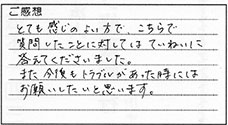 ご感想
とても感じのよい方で、こちらで
質問したことに対しては ていねいに
答えてくださいました。
また今後もトラブルがあった時には
お願いしたいと思います。